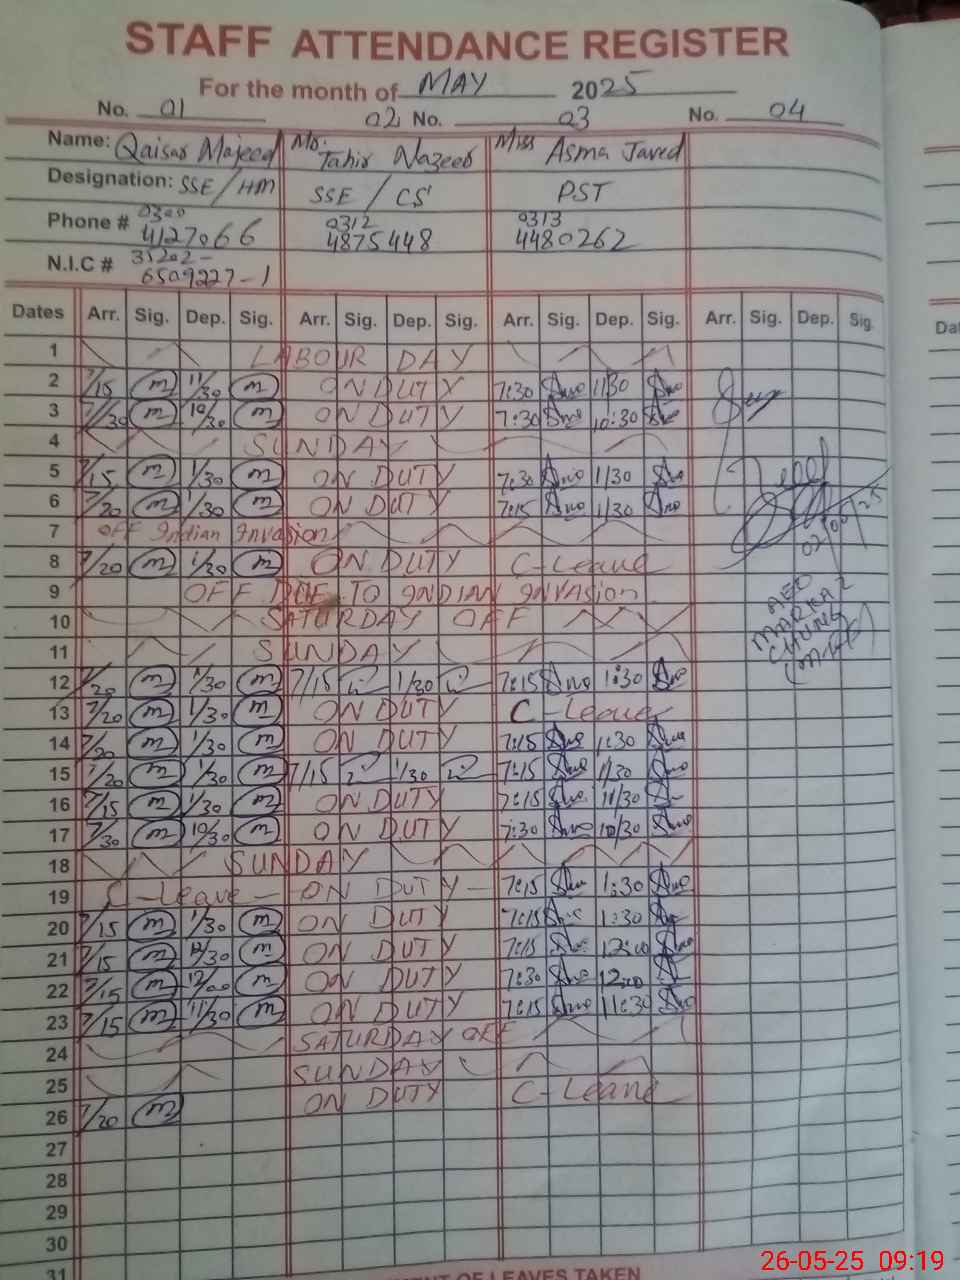 STAFF ATTENDANCE REGISTER
For the month of MAY 2025
No. 01 02 No. 03 No. 04
Name: Qaisar Majeed Mr. Tahir Nazeer Miss Asma Javed
Designation: SSE/HM SSE / CS PST
Phone # 0300 4127066 0312 4875448 0313 4480262
N.I.C # 35202-6509227-1
Dates Arr. Sig. Dep. Sig. Arr. Sig. Dep. Sig. Arr. Sig. Dep. Sig. Arr. Sig. Dep. Sig.
1 LABOUR DAY
2 7/15 m 11/30 m ON DUTY 7:30 11/30
3 7/30 m 10/30 m ON DUTY 7:30 10:30
4 SUNDAY
5 7/15 m 1/30 m ON DUTY 7:30 1/30
6 7/20 m 1/30 m ON DUTY 7:15 1/30
7 OFF Indian Invasion
8 7/20 m 1/30 m ON DUTY C-Leave
9 OFF DUE TO INDIAN INVASION
10 SATURDAY OFF
11 SUNDAY
12 7/20 m 1/30 m 7/15 1/30 7:15 1:30
13 7/20 m 1/30 m ON DUTY C-Leave
14 7/20 m 1/30 m ON DUTY 7:15 1:30
15 7/20 m 1/30 m 7/15 1/30 7:15 1/30
16 7/15 m 1/30 m ON DUTY 7:15 11/30
17 7/30 m 10/30 m ON DUTY 7:30 10/30
18 SUNDAY
19 C-Leave - ON DUTY - 7:15 1:30
20 7/15 m 1/30 m ON DUTY 7:15 1:30
21 7/15 m 12/30 m ON DUTY 7:15 12:00
22 7/15 m 12/00 m ON DUTY 7:30 12:00
23 7/15 m 11/30 m ON DUTY 7:15 11:30
24 SATURDAY OFF
25 SUNDAY
26 7/20 m ON DUTY C-Leave
27
28
29
30
31
AEO
MARKAZ
CHUNG
OF LEAVES TAKEN
Dat
26-05-25 09:19